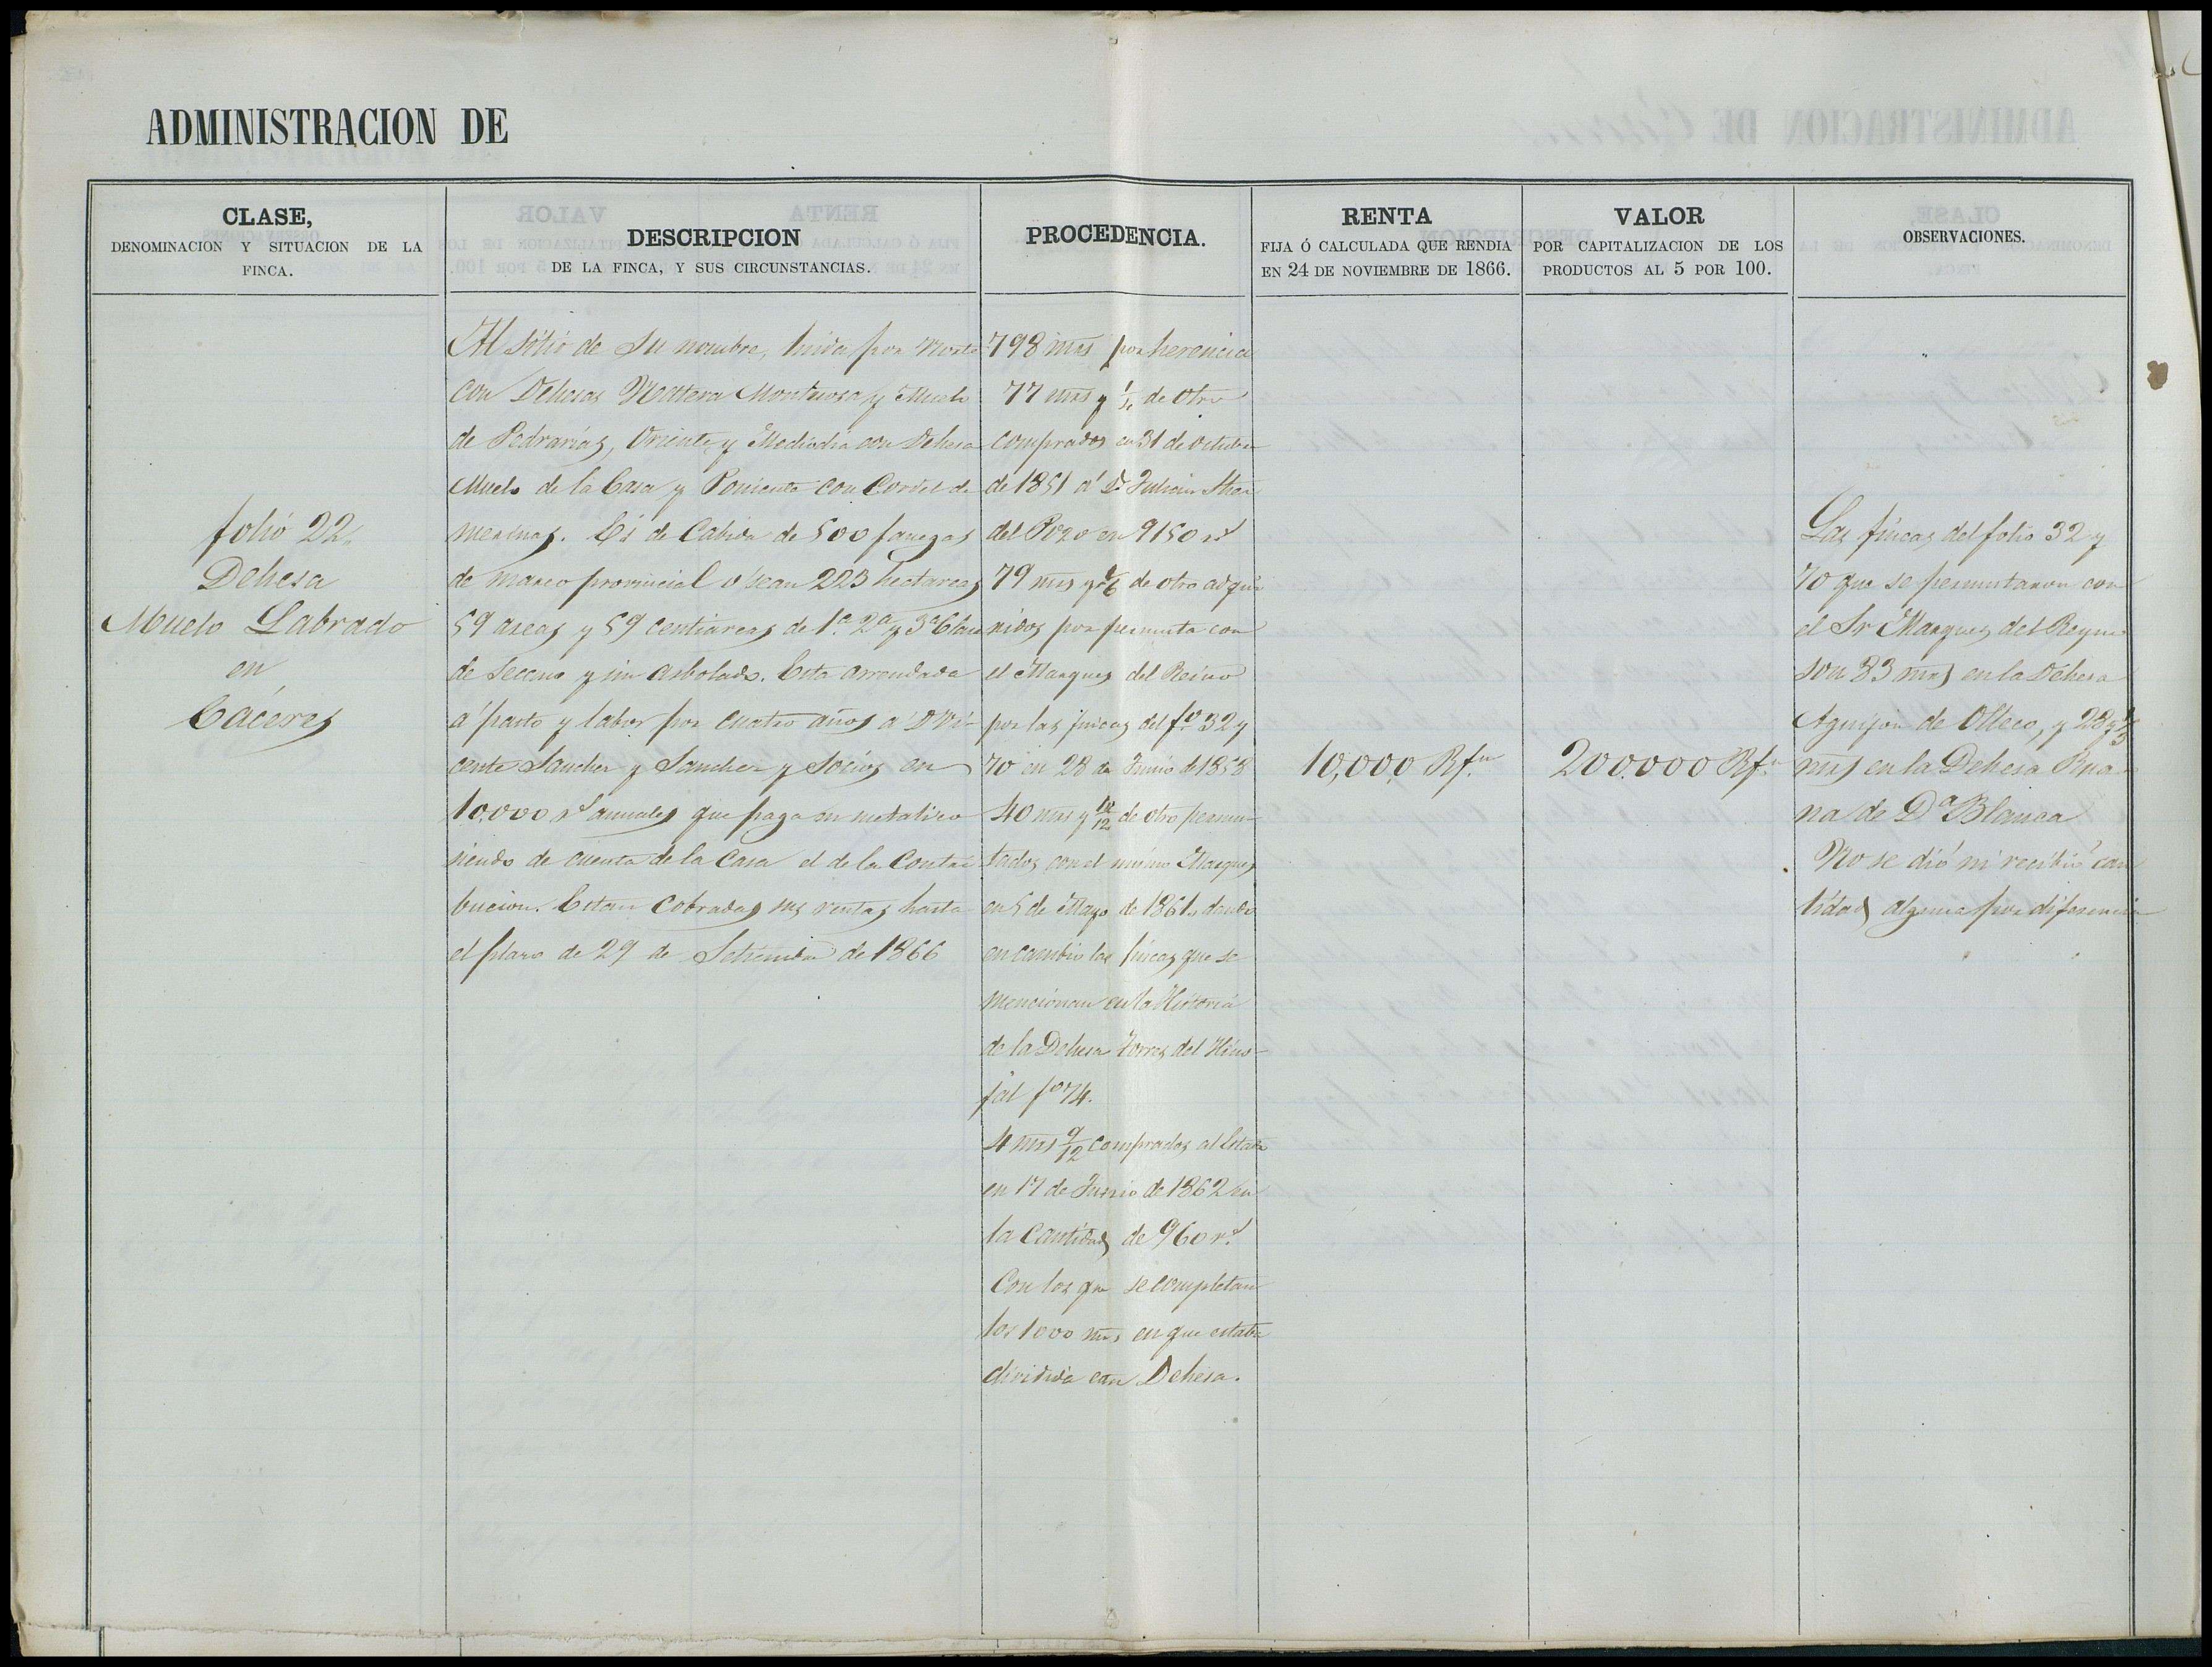 ADMINISTRACION DE
CLASE,
DENOMINACION Y SITUACION DE LA
FINCA.
DESCRIPCION
DE LA FINCA, Y SUS CIRCUNSTANCIAS.
PROCEDENCIA.
RENTA
FIJA Ó CALCULADA QUE RENDIA
EN 24 DE NOVIEMBRE DE 1866.
VALOR
POR CAPITALIZACION DE LOS
PRODUCTOS AL 5 POR 100.
OBSERVACIONES.
folio 22
Dehesa
Muelo Labrado
en
Cáceres
Al sitio de su nombre, linda por Norte
con Dehesas Matera Montuosa y Muelo
de Pedrarias, Oriente y Mediodia con Dehesa
Muelo de la Casa y Poniente con Cordel de
merinas. Es de Cabida de 500 fanegas
de marco provincial o sean 223 hectareas
59 areas y 59 centiareas de 1.ª 2.ª y 3.ª Clase
de secano y sin arbolado. Esta arrendada
a pasto y labor por cuatro años a D. Vi-
cente Sanchez y Sanchez y Socios en
10.000 r.s anuales que paga en metalico
siendo de cuenta de la Casa el de la Contri
bucion. Estan cobradas sus rentas hasta
el plazo de 29 de Setiembre de 1866
798 mrs por herencia
77 mrs y de otro
comprados en 31 de octubre
de 1851 a D. Julian
del Pozo en 9150 rs
79 mrs y de otro adqui
ridos por permuta con
el Marques del Reino
por las fincas del fº 32 y
70 en 28 de Junio de 1858
40 mrs y de otro permu-
tados con el mismo Marques
en 5 de Mayo de 1861 dando
en cambio las fincas que se
mencionan en la Historia
de la Dehesa Torres del Hino-
jal fº 74.
4 mrs 9/12 comprados al Estado
en 17 de Junio de 1862 en
la cantidad de 960 rs
Con los que se completan
los 1000 mrs en que estaba
dividida esta Dehesa.
10,000 Rs.vn
200.000 Rs.vn
Las fincas del folio 32 y
70 que se permutaron con
el Sr Marques del Reyno
son 83 mrs en la Dehesa
Aguijon de y 28 y
mrs en la Dehesa
na de D.ª Blanca
No se dió ni recibió can
tidad alguna por diferencia